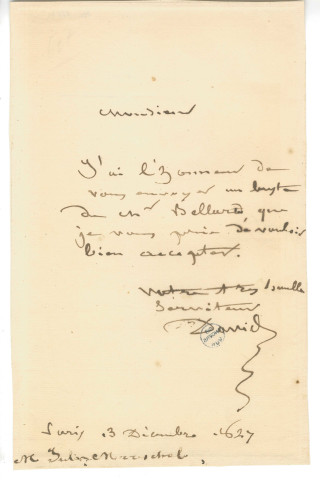 Monsieur
J'ai l'honneur de
vous envoyer un buste
de Mr Bellard, que
je vous prie de vouloir
bien accepter.
votre très humble
Serviteur
David
Paris 3 Décembre 1827
M